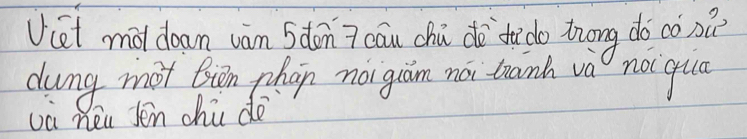 Viết một đoạn văn 5 đến 7 câu chủ đề tự do trong đó có sử
dụng một biện pháp nói giảm nói tránh và nói quá
và nêu tên chủ đề